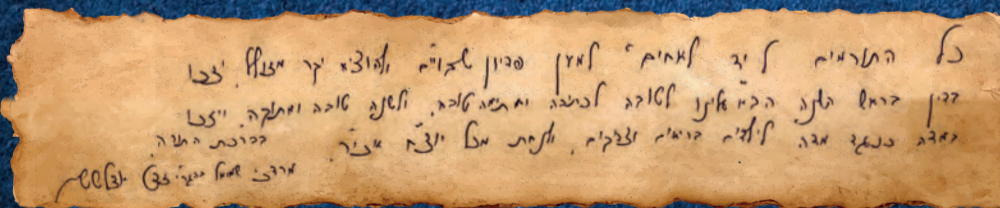 כל התורמים ל"יד לאחים" למען פדיון שבויים ולהוציא יקר מזולל, יזכו
בדין בראש השנה הבא עלינו לטובה לכתיבה וחתימה טובה, ולשנה טובה ומתוקה, ויזכו
במדה כנגד מדה לילדים בריאים וצדיקים, ולנחת מכל יוצ"ח אכי"ר.
בברכת התורה,
מרדכי שמואל